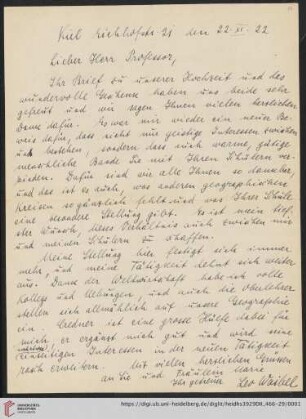 Kiel Kirchhofstr. 21 den 22. XI. 22
Lieber Herr Professor,
Ihr Brief zu unserer Hochzeit und das
wundervolle Geschenk haben uns beide sehr
gefreut und wir sagen Ihnen vielen herzlichen
Dank dafür. Es war mir wieder ein neuer Be-
weis dafür, dass nicht nur geistige Interessen zwischen
uns bestehen, sondern dass auch warme, gütige
menschliche Bande Sie mit Ihren Schülern ver-
binden. Dafür sind wir alle Ihnen so dankbar,
und das ist es auch, was anderen geographischen
Kreisen so gänzlich fehlt und was Ihrer Schule
eine besondere Stellung gibt. Es ist mein tief-
ster Wunsch, dieses Verhältnis auch zwischen mir
und meinen Schülern zu schaffen.
Meine Stellung hier festigt sich immer
mehr, und meine Tätigkeit dehnt sich weiter
aus. Dank der Weltwirtschaft habe ich volle
Kollegs und Uebungen, und auch die Oberlehrer
stellen sich allmählich auf unsere Geographie
ein. Credner ist eine grosse Hülfe dabei für
mich, er ergänzt mich gut und wird seine
einseitigen Interessen in der neuen Tätigkeit
rasch erweitern. Mit vielen herzlichen Grüssen
an Sie und Fräulein Marie
Ihr
Leo Waibel
UNIVERSITÄTS-
BIBLIOTHEK
HEIDELBERG
https://digi.ub.uni-heidelberg.de/diglit/heidhs3929D8_466-29/0001